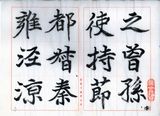 之曾孫
使持節
都督秦
雍涇涼